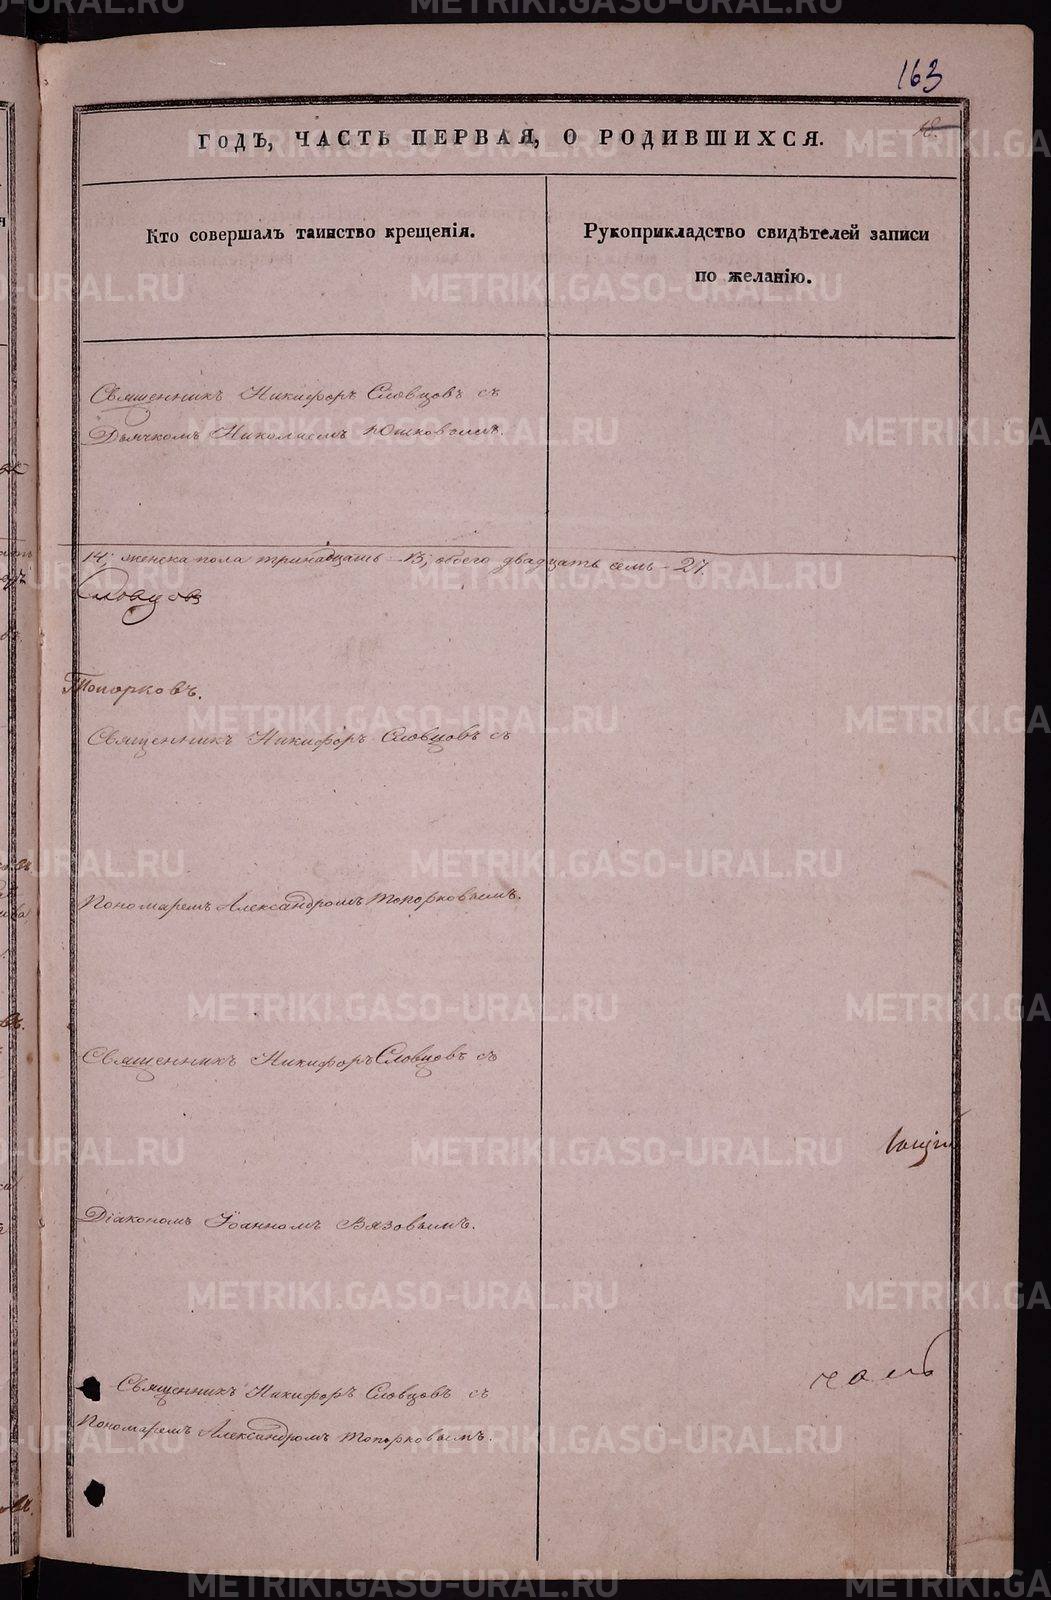 163
18.
ГОДЪ, ЧАСТЬ ПЕРВАЯ, О РОДИВШИХСЯ.
Кто совершалъ таинство крещенія.
Рукоприкладство свидѣтелей записи
по желанію.
Священникъ Никифоръ Словцовъ съ
Дьячкомъ Николаемъ Юшковымъ.
14; женска пола тринадцать 13; обоего двадцать семь - 27.
Словцовъ
Топорковъ.
Священникъ Никифоръ Словцовъ съ
Пономаремъ Александромъ Топорковымъ.
Священникъ Никифоръ Словцовъ съ
Діакономъ Іоанномъ Вязовымъ.
Священникъ Никифоръ Словцовъ съ
Пономаремъ Александромъ Топорковымъ.
METRIKI.GASO-URAL.RU